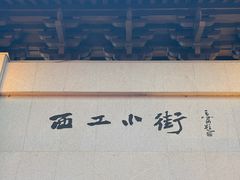 西工小街